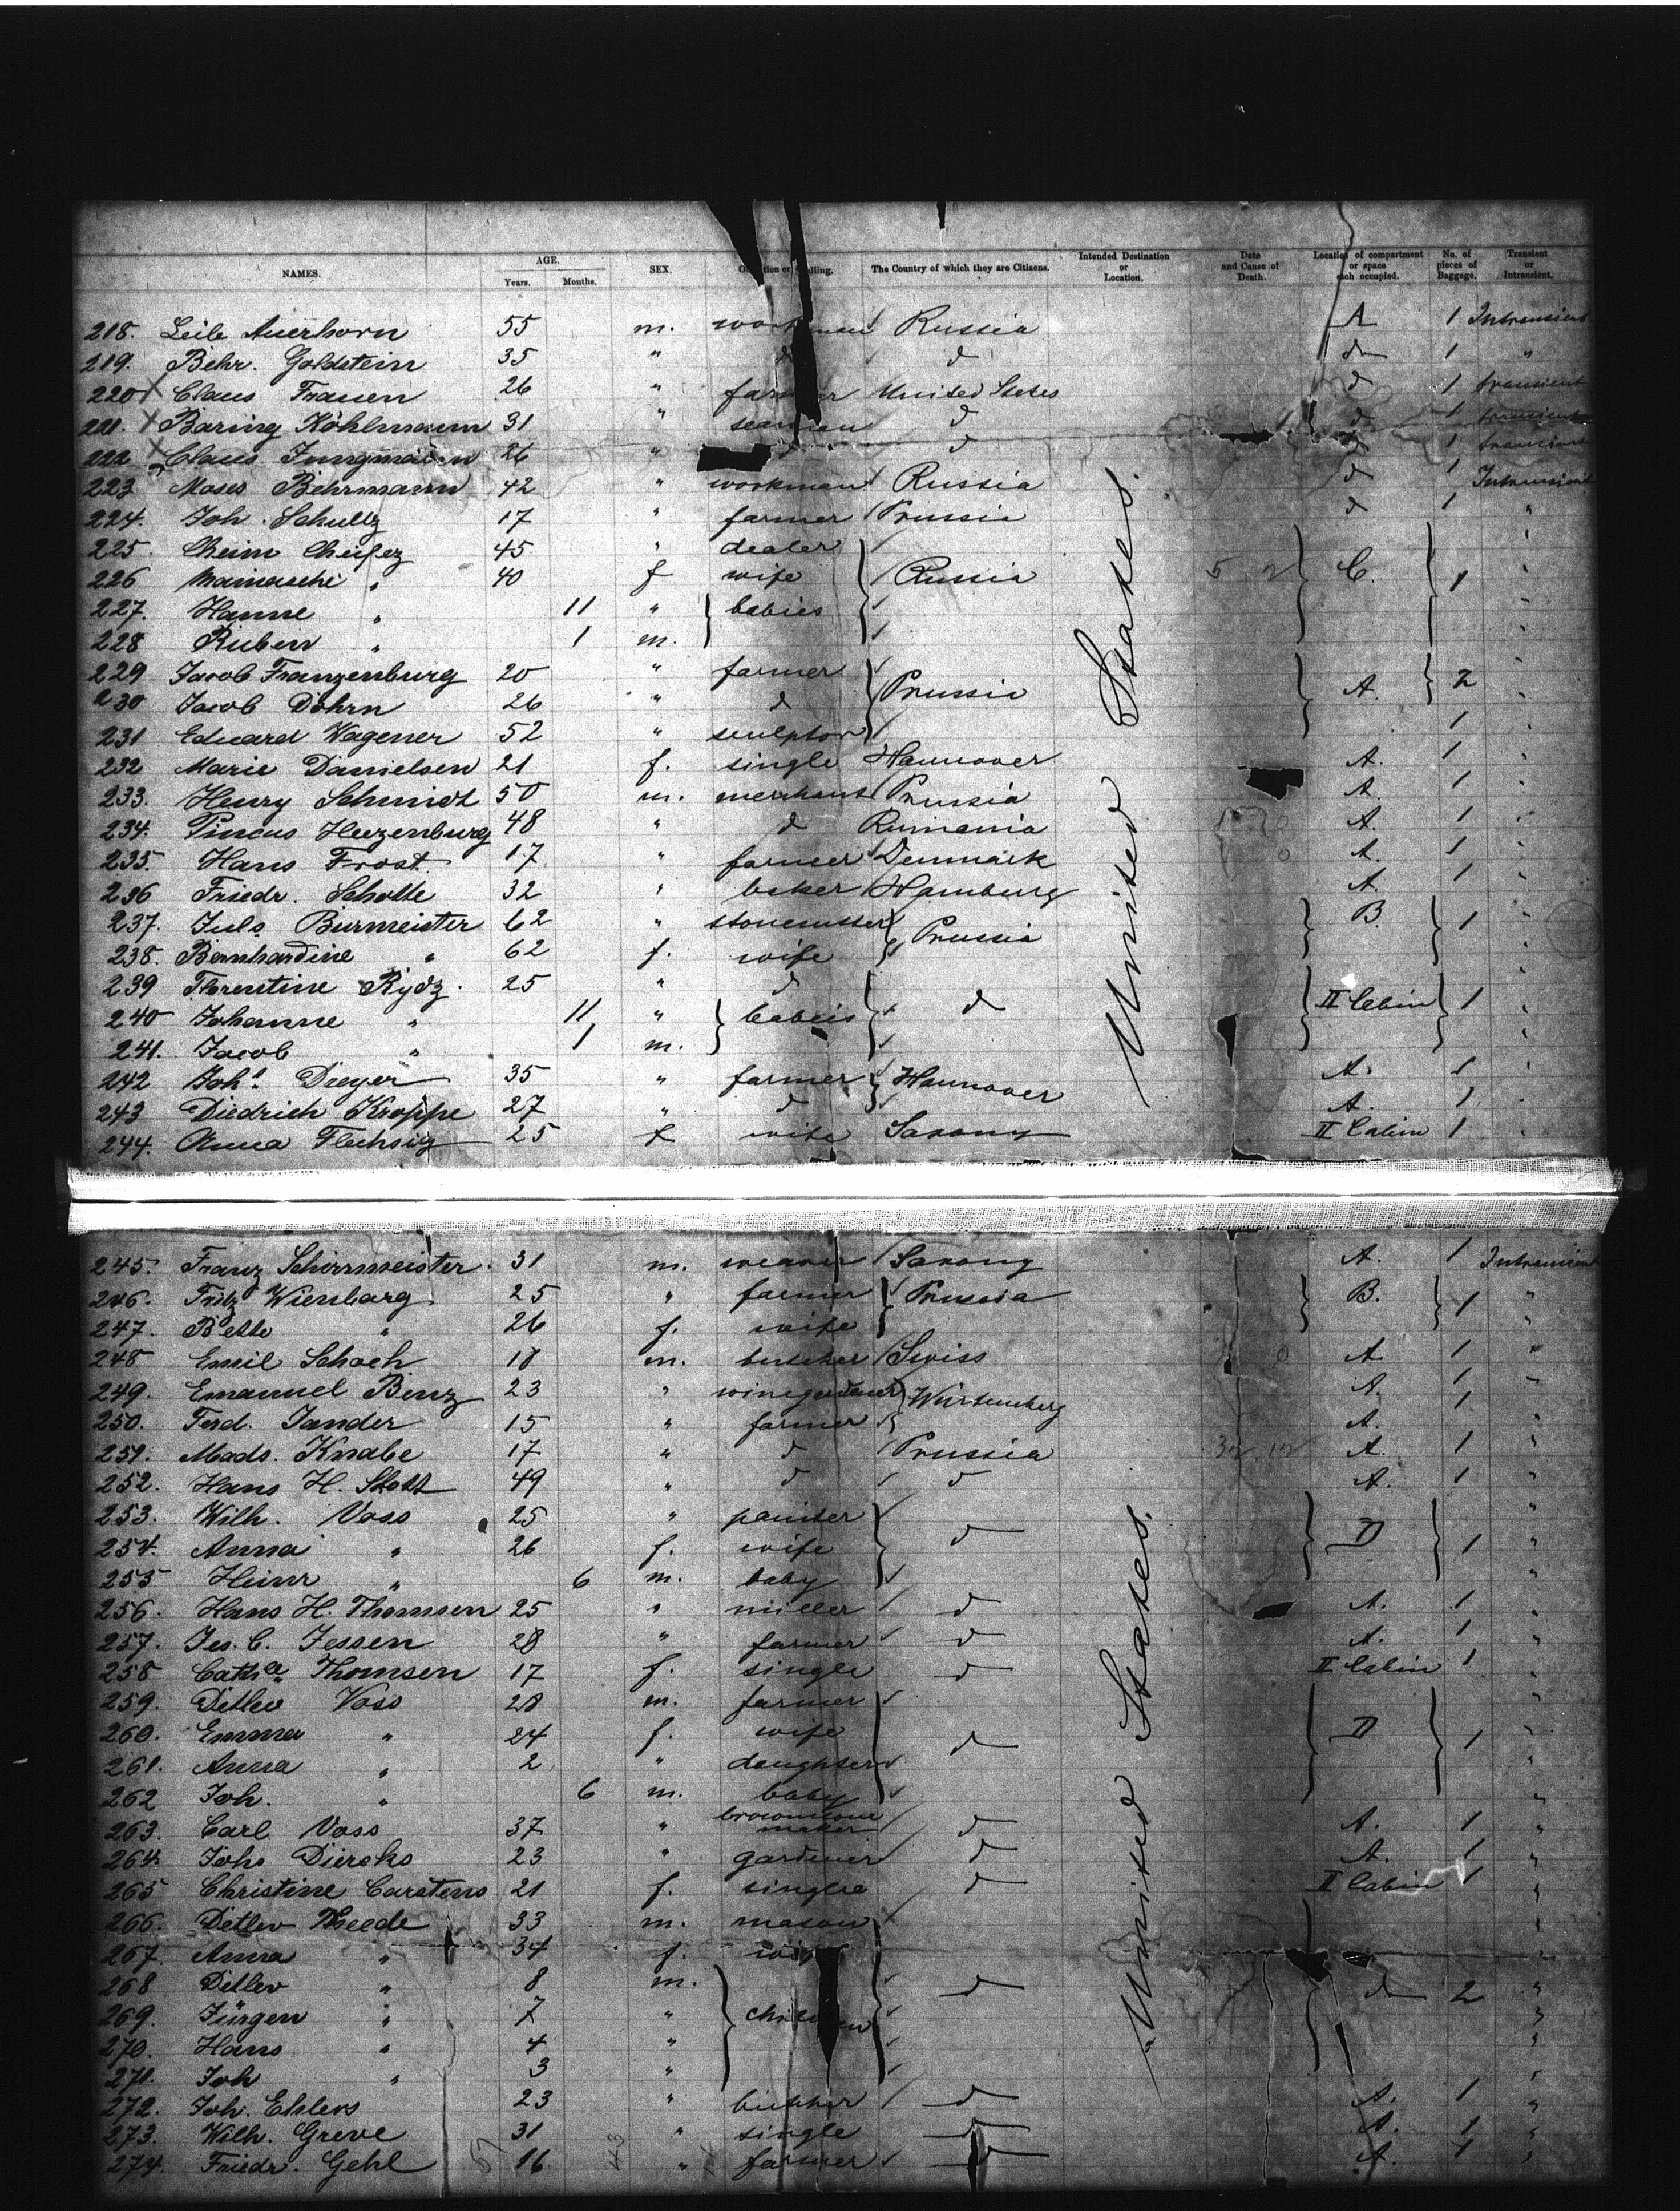 NAMES. AGE. Years. Months. SEX. The Country of which they are Citizens. Intended Destination or Location. Date and Cause of Death. Location of compartment or space each occupied. No. of pieces of Baggage. Transient or Intransient.
218. Leib Auerhorn 55 m. workman Russia A 1 Intransient
219. Behr. Goldstein 35 " d d d 1 "
220 Claus Frauen 26 " farmer United States d 1 transient
221. Baring Köhlmann 31 " seaman d d 1 transient
222 Claus Jungmann 26 " d d 1 transient
223 Moses Behrmann 42 " workman Russia d 1 Intransient
224. Joh. Schultz 17 " farmer Prussia d 1 "
225. Cheim 45 " dealer "
226 " 40 f wife Russia C. 1 "
227. Hanne " 11 " babies "
228 Ruben " 1 m. "
229 Jacob Franzenburg 20 " farmer "
230 Jacob Döhrn 26 " d Prussia A. 2 "
231 Eduard Wagener 52 " sculptor 1 "
232 Marie Danielsen 21 f. single Hannover A. 1 "
233. Henry Schmidt 50 m. merchant Prussia A. 1 "
234. Pincus 48 " d Rumania A. 1 "
235. Hans Frost 17 " farmer Denmark A. 1 "
236 Friedr. Scholte 32 " baker Hamburg A. 1 "
237. Juls Burmeister 62 " stonecutter Prussia B. 1 "
238. Bernhardine " 62 f. wife "
239 Florentine Rydz. 25 " d "
240 Johanne " 11 " babeis d II Cabin 1 "
241. Jacob " 1 m. "
242 Johs. Dreyer 35 " farmer Hannover A. 1 "
243 Diedrich Kroppe 27 " d A. 1 "
244. Anna Flechsig 25 f wife Saxony II Cabin 1 "
United States.
245. Franz Schirrmeister. 31 m. weaver Saxony A. 1 Intransient
246. Fritz Wienbarg 25 " farmer Prussia B. 1 "
247. Bette " 26 f. wife "
248 Emil Schoch 18 m. butcher Swiss A. 1 "
249. Emanuel Benz 23 " winegardener Würtemberg A. 1 "
250. Ferd. Jander 15 " farmer A. 1 "
251. Mads. Knabe 17 " d Prussia A. 1 "
252. Hans H. Stott 49 " d d A. 1 "
253. Wilh. Voss 25 " painter "
254. Anna " 26 f. wife d D 1 "
255 Heinr " 6 m. baby "
256. Hans H. Thomsen 25 " miller d A. 1 "
257. Jes. C. Jessen 28 " farmer d A. 1 "
258 Cathe Thomsen 17 f. single d II Cabin 1 "
259. Detlev Voss 28 m. farmer "
260. Emma " 24 f. wife d D 1 "
261. Anna " 2 " daughter "
262 Joh. " 6 m. baby "
263. Carl Voss 37 " maker d A. 1 "
264. Johs Dierchs 23 " gardener d A. 1 "
265 Christine Carstens 21 f. single d II Cabin 1 "
266. Detlev Theede 33 m. mason "
267. Anna " 34 f. wife "
268 Detlev " 8 m. d d 2 "
269. Jürgen " 7 " children "
270. Hans " 4 " "
271. Joh " 3 " "
272. Joh. Ehlers 23 " butcher d A. 1 "
273. Wilh. Greve 31 " single d A. 1 "
274. Friedr. Gehl 16 " farmer d A. 1 "
United States.